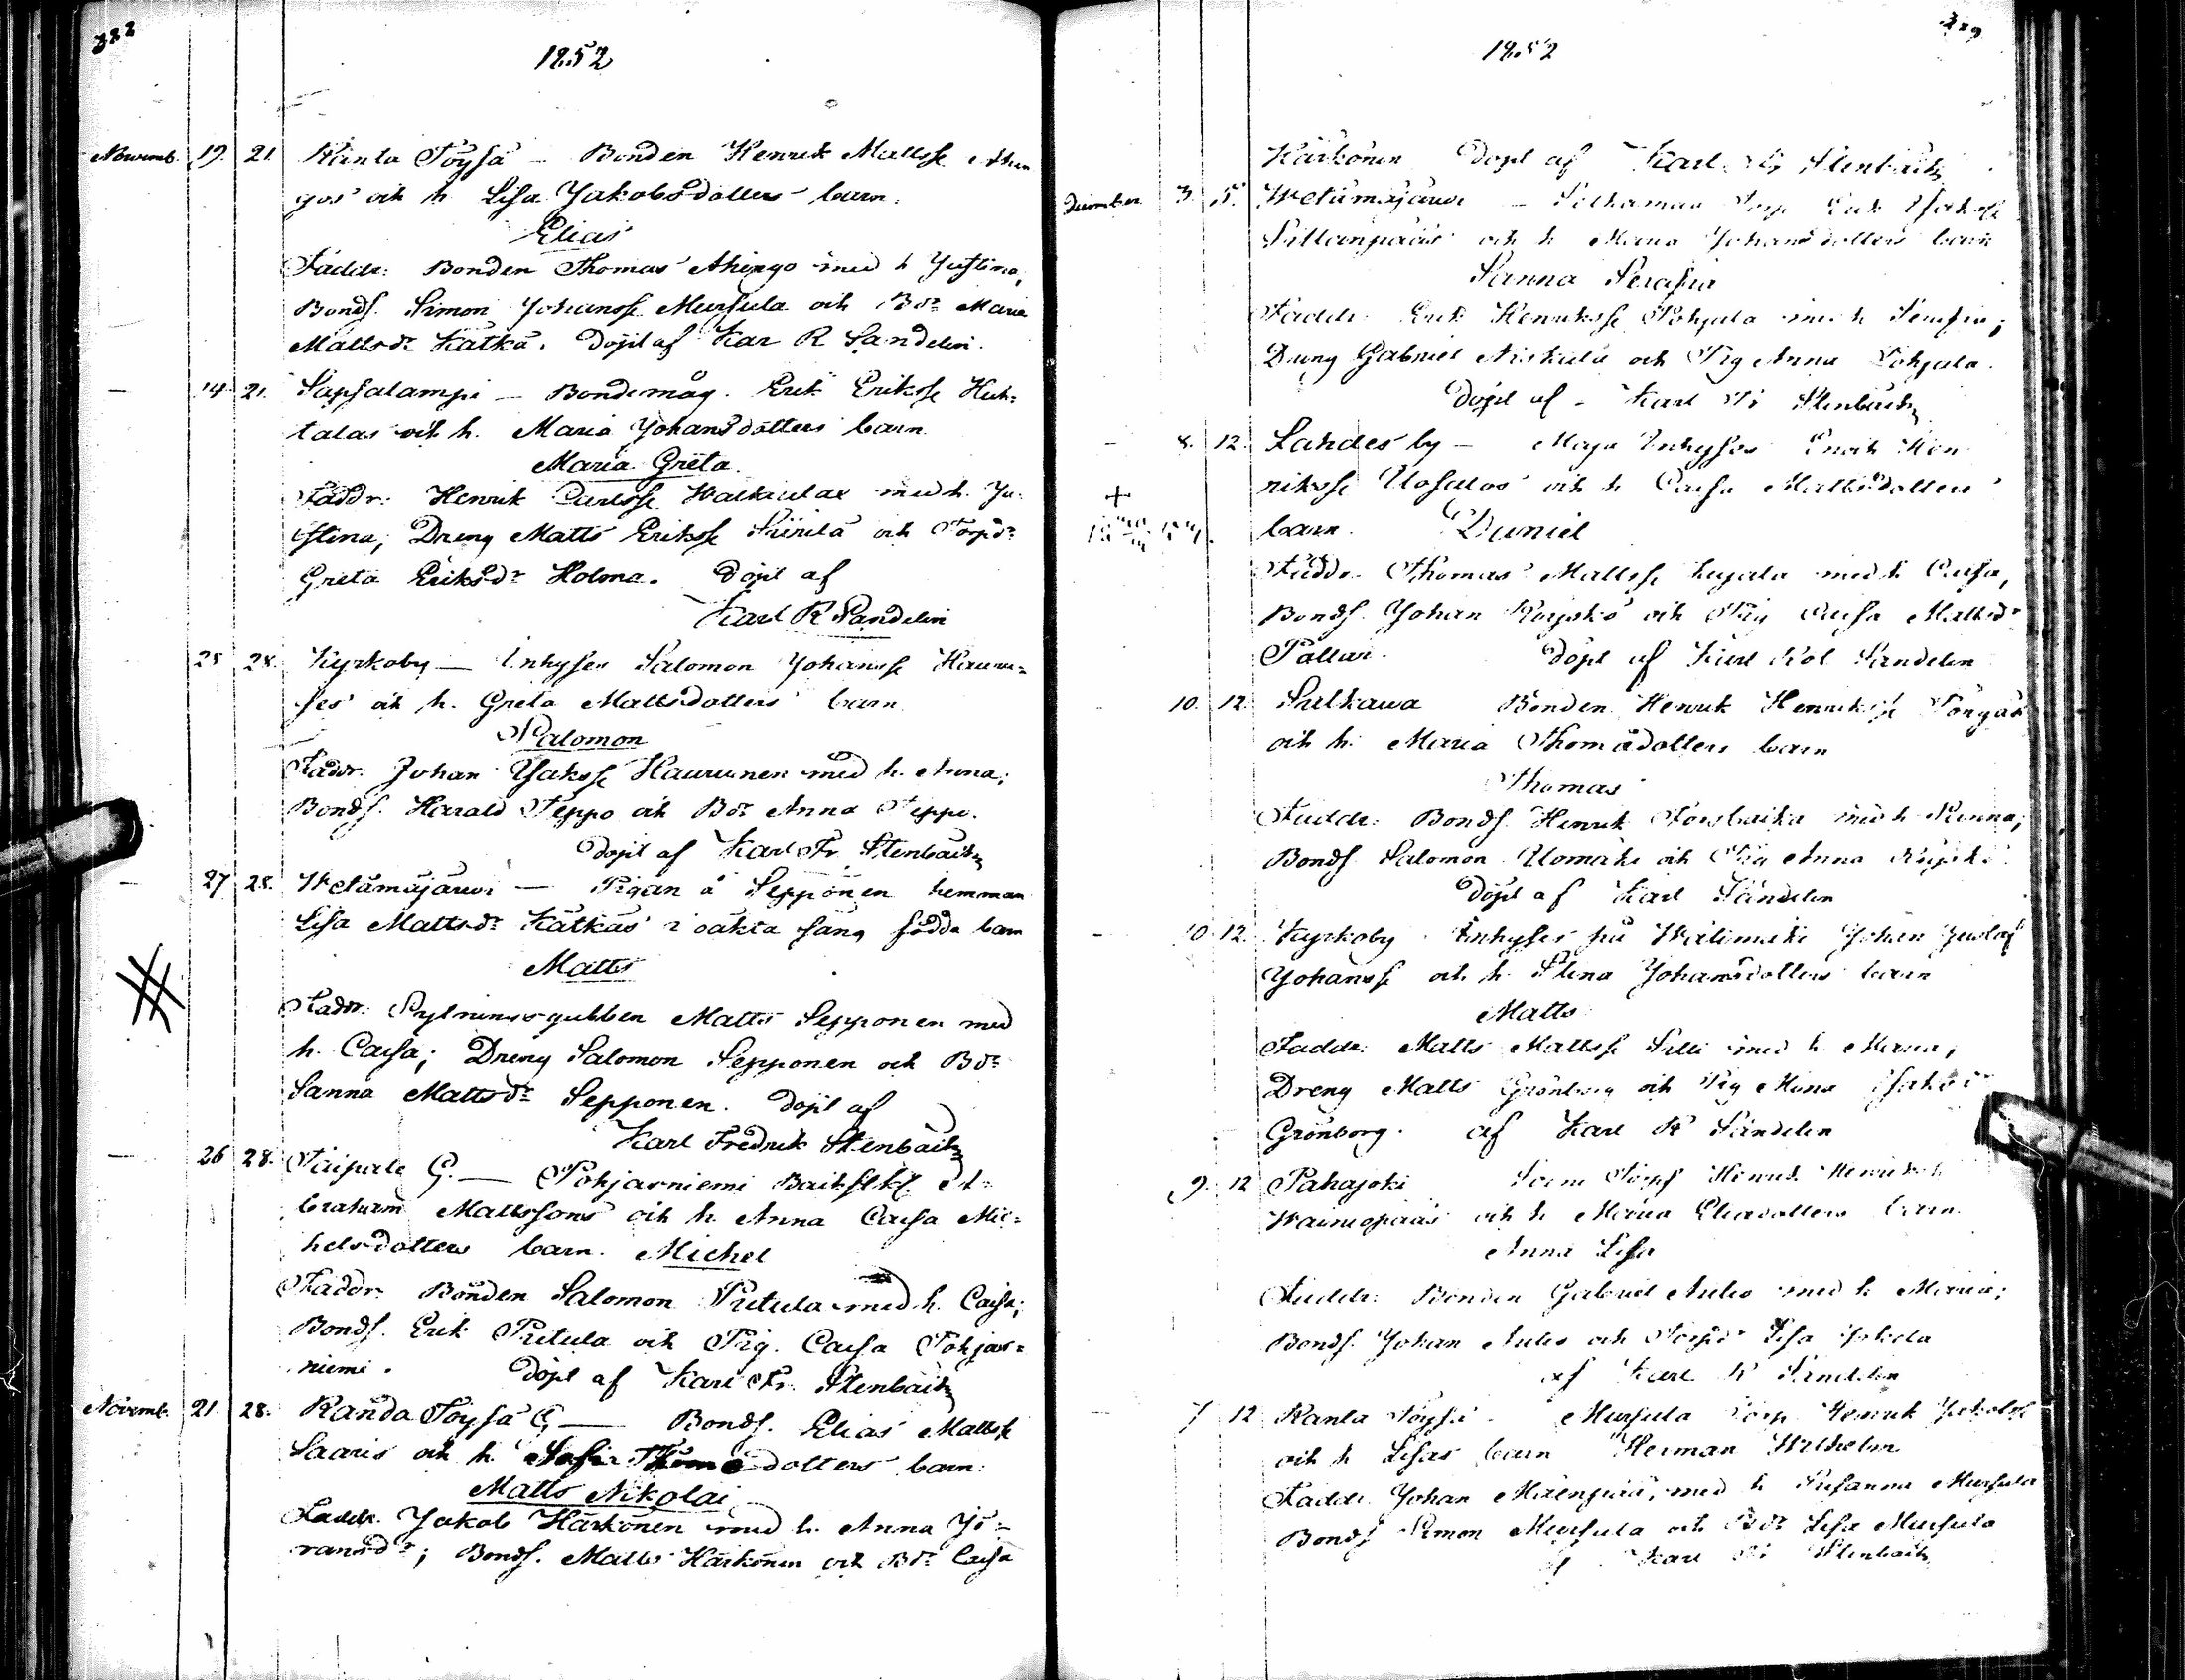 322
1852
Novemb. 19. 21. Ranta Töysä – Bonden Henrik Mattss. Ahin
gos och h. Lisa Jakobsdotters barn.
Elias
Faddr: Bonden Thomas Ahingo med h Justina,
Bonds. Simon Johanss. Mursula och Bdr Maria
Mattsdr Kätkä. Döpt af Kar R Sandelin.
— 14 21. Sapsalampi – Bondemåg. Erik Erikss. Huh=
talas och h. Maria Johansdotters barn
Maria Greta.
Faddr: Henrik Carlss. med h. Ju
stina; Dreng Matts Erikss. Siirilä och Torpdr
Greta Eriksdr Holma. Döpt af
Karl R Sandelin
25 28. Kyrkoby — Inhyses Salomon Johanss. Hauru=
ses och h. Greta Mattsdotters barn
Salomon
Faddr: Johan Jakss. Haurunen med h. Anna;
Bonds. Harald Seppo och Bdr Anna Seppo.
Döpt af Karl Fr. Stenbäck
— 27 28. Wetämäjärwi — Pigan å Sepponen hemman
Lisa Mattsdr Kätkäs i oäkta säng födda barn
Matts
Faddr: Sytningsgubben Matts Sepponen med
h. Caisa; Dreng Salomon Sepponen och Bdr
Sanna Mattsdr Sepponen. Döpt af
Karl Fredrik Stenbäck
— 26 28. Taipale G. — Pohjarniemi Backstk. A=
braham Mattssons och h. Anna Caisa Mic=
helsdotters barn. Michel
Faddr. Bonden Salomon Pitula med h. Caisa;
Bonds. Erik Pitula och Pig. Caisa Pohjar=
niemi. Döpt af Karl Fr. Stenbäck
Novemb. 21. 28. Randa Töysä G. — Bonds. Elias Mattss.
Saaris och h. Sofia Thomædotters barn:
Matts Nikolai
Faddr. Jakob Härkönen med h. Anna Jö=
ransdr; Bonds. Matts Härkönen och Bdr Caisa
1852
Härkönen Döpt af Karl Fr Stenbäck
December 3. 5. Wetämäjärwi – Torp. Erik
Sillanpääs och h Maria Johansdotters barn
Sanna Serafia
Faddr. Erik Henrikss. Pohjala med h Serafia;
Dreng Gabriel Niskala och Pig Anna Pohjala.
Döpt af – Karl Fr Stenbäck
– 8. 12. Lahdes by – Inhyses Enoch Hen
rikss. och h Caisa Mattsdotters
+ barn. Daniel
Faddr. Thomas Mattss. med h Caisa,
Bonds. Johan och Pig Caisa Mattsdr
Pollari. Döpt af Karl Rob Sandelin
– 10. 12. Sulkawa Bonden Henrik Henrikss.
och h. Maria Thomædotters barn
Thomas
Faddr: Bonds. Henrik med h Sanna;
Bonds. Salomon och Pig Anna
Döpt af Karl Sandelin
– 10. 12. Kyrkoby Inhyses på Wälimäki Johan Gustaf
Johanss. och h. Stina Johansdotters barn
Matts
Faddr: Matts Mattss. med h Maria,
Dreng Matts Grönborg och Pig Maria
Grönborg. af Karl R Sandelin
9. 12 Pahajoki Torp. Henrik
Wainiopääs och h Maria Eliædotters barn.
Anna Lisa
Faddr: Bonden Gabriel Aulio med h Maria;
Bonds. Johan Aulio och Torpdr Lisa
af Karl R Sandelin
7 12 Ranta Töysä – Mursula Torp Henrik Jakobss.
och h Lisas barn Herman Wilhelm
Faddr. Johan med h Susanna Mursula
Bonds. Simon Mursula och Bdr Lisa Mursula
af Karl Fr Stenbäck